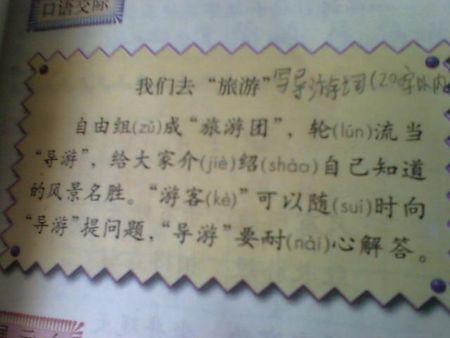 口语交际
我们去“旅游”写导游词(200字以内
自由组(zǔ)成“旅游团”，轮(lún)流当
“导游”，给大家介(jiè)绍(shào)自己知道
的风景名胜。“游客(kè)”可以随(suí)时向
“导游”提问题，“导游”要耐(nài)心解答。